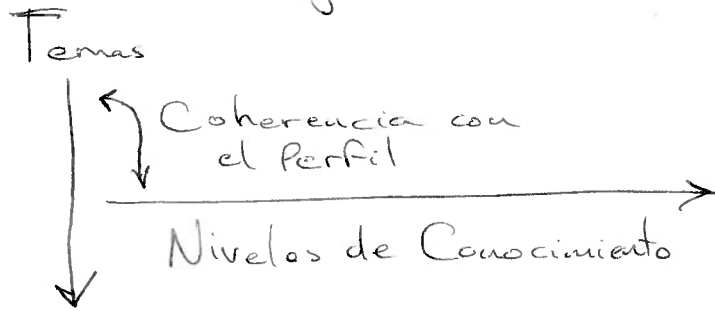 Temas
Coherencia con
el Perfil
Niveles de Conocimiento